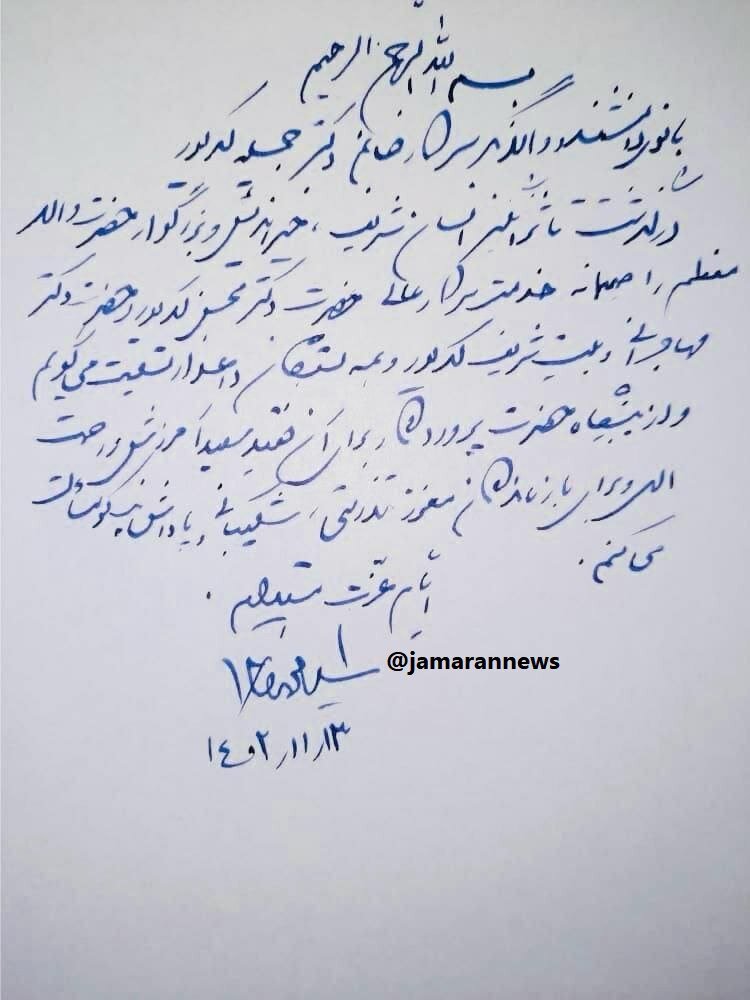 بسم الله الرحمن الرحیم
بانوی دانشمند و الاگهر سرکار خانم دکتر جمیله کدیور
درگذشت تأثرانگیز انسان شریف، خیراندیش و بزرگوار حضرت والد
معظم را صمیمانه خدمت سرکار عالی حضرت دکتر محسن کدیور و حضرت دکتر
مهاجرانی و بیت شریف کدیور و همه بستگان داغدار تسلیت می گویم
و از پیشگاه حضرت پروردگار برای آن فقید سعید آمرزش و رحمت
الهی و برای بازماندگان معزز تندرستی، شکیبائی و پاداش نیکو مسألت
می کنم.
ایام عزت مستدام.
سید محمد خاتمی
@jamarannews
۱۴۰۲،۱۱،۱۳